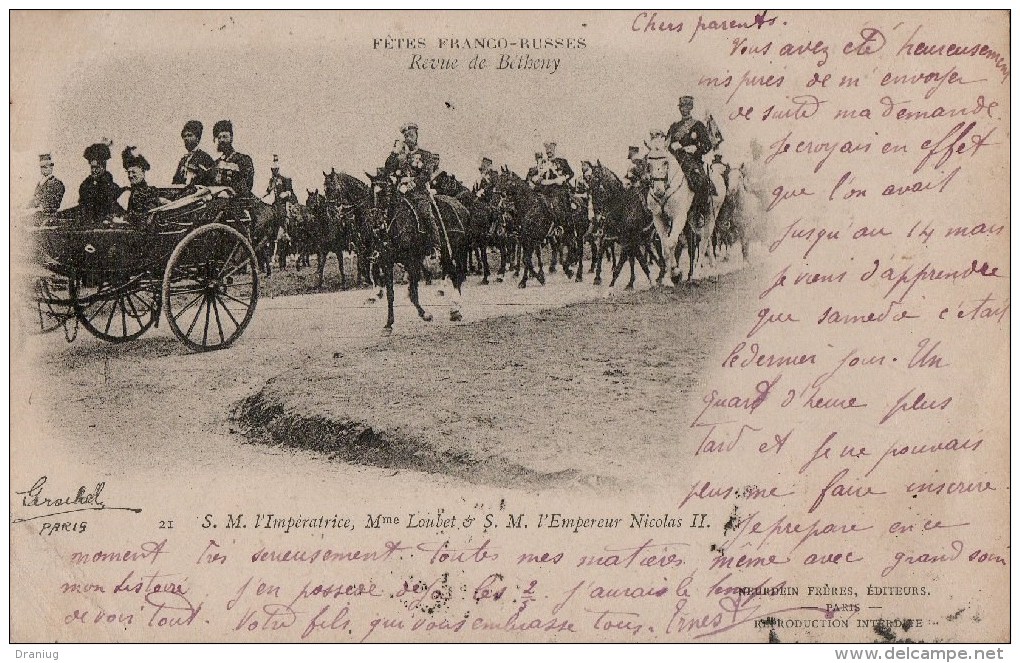 FÊTES FRANCO-RUSSES
Revue de Bétheny
Chers parents.
Vous avez été heureusement
inspirés de m'envoyer
de suite ma demande.
Je croyais en effet
que l'on avait
jusqu'au 14 mais
je viens d'apprendre
que samedi c'était
le dernier jour. Un
quart d'heure plus
tard et je ne pouvais
plus me faire inscrire.
Je prépare en ce
moment très sérieusement toutes mes matières même avec grand soin
mon histoire j'en possède déjà les 2/3 j'aurais le temps
de voir tout. Votre fils qui vous embrasse tous. Ernest
PARIS
21 S. M. l'Impératrice, Mme Loubet & S. M. l'Empereur Nicolas II.
NEURDEIN FRÈRES, ÉDITEURS.
— PARIS —
REPRODUCTION INTERDITE
Draniug
http://www.delcampe.net